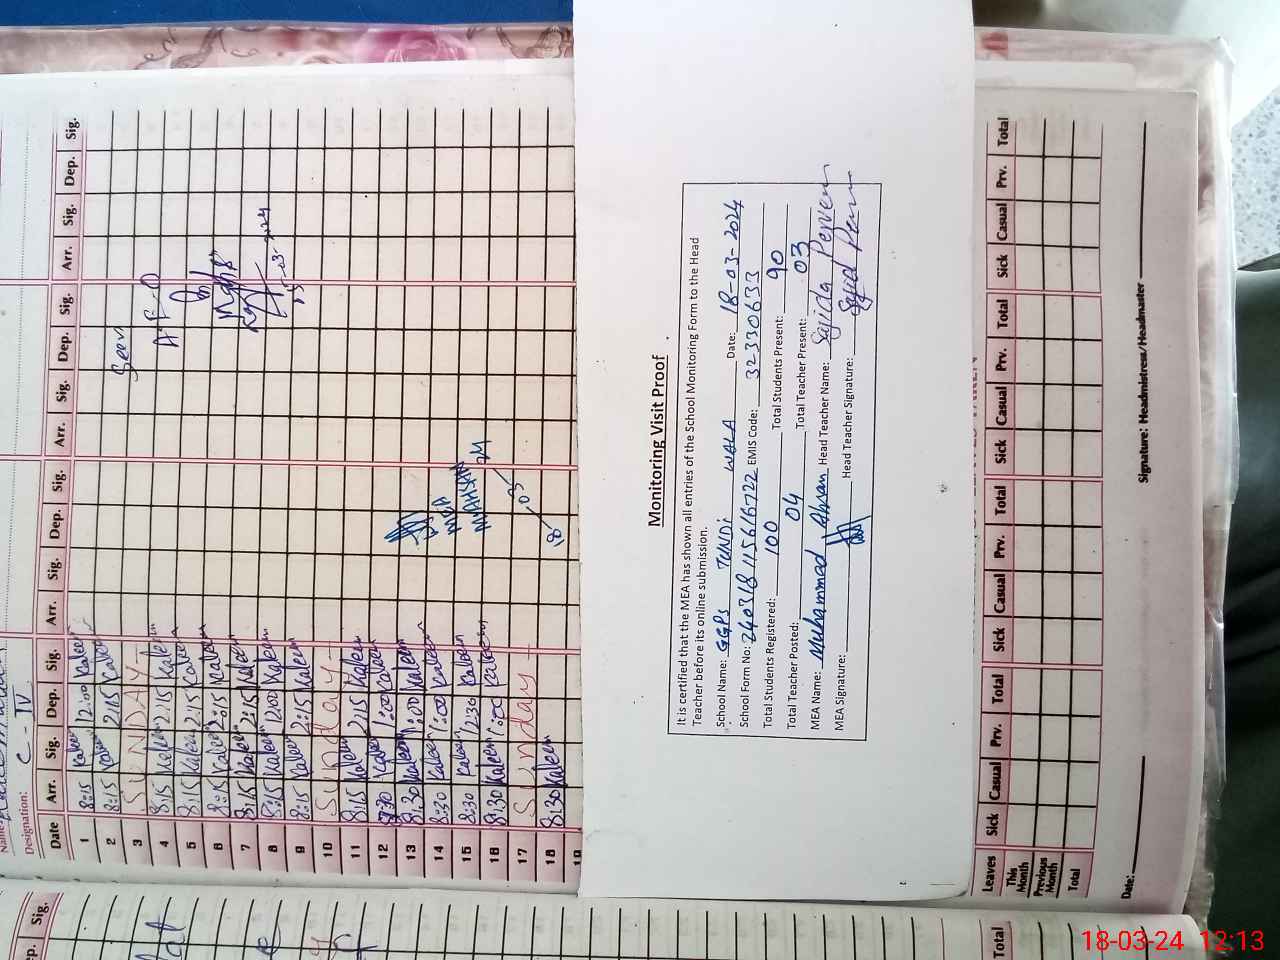 Designation: C - IV
Date Arr. Sig. Dep. Sig. Arr. Sig. Dep. Sig. Arr. Sig. Dep. Sig. Arr. Sig. Dep. Sig.
1 8:15 Kaleem 12:00 Kaleem
2 8:15 Kaleem 2:15 Kaleem
3 SUNDAY
4 8:15 Kaleem 2:15 Kaleem
5 8:15 Kaleem 2:15 Kaleem
6 8:15 Kaleem 2:15 Kaleem
7 8:15 Kaleem 2:15 Kaleem
8 8:15 Kaleem 12:00 Kaleem
9 8:15 Kaleem 2:15 Kaleem
10 Sunday
11 8:15 Kaleem 2:15 Kaleem
12 8:30 Kaleem 1:00 Kaleem
13 8:30 Kaleem 1:00 Kaleem
14 8:30 Kaleem 1:00 Kaleem
15 8:30 Kaleem 12:30 Kaleem
16 8:30 Kaleem 1:00 Kaleem
17 Sunday
18 8:30 Kaleem
19
Seen
MEA
M AHSAN
18-03-24
Monitoring Visit Proof
It is certified that the MEA has shown all entries of the School Monitoring Form to the Head
Teacher before its online submission.
School Name: GGPS TUNDI WALA Date: 18-03-2024
School Form No: 240318115616722 EMIS Code: 32330633
Total Students Registered: 100 Total Students Present: 90
Total Teacher Posted: 04 Total Teacher Present: 03
MEA Name: Muhammad Ahsan Head Teacher Name: Sajida Perveen
MEA Signature: Head Teacher Signature:
Leaves Sick Casual Prv. Total Sick Casual Prv. Total Sick Casual Prv. Total Sick Casual Prv. Total
This Month
Previous Month
Total
Date: Signature: Headmistress/Headmaster
Sig.
Total
18-03-24 12:13